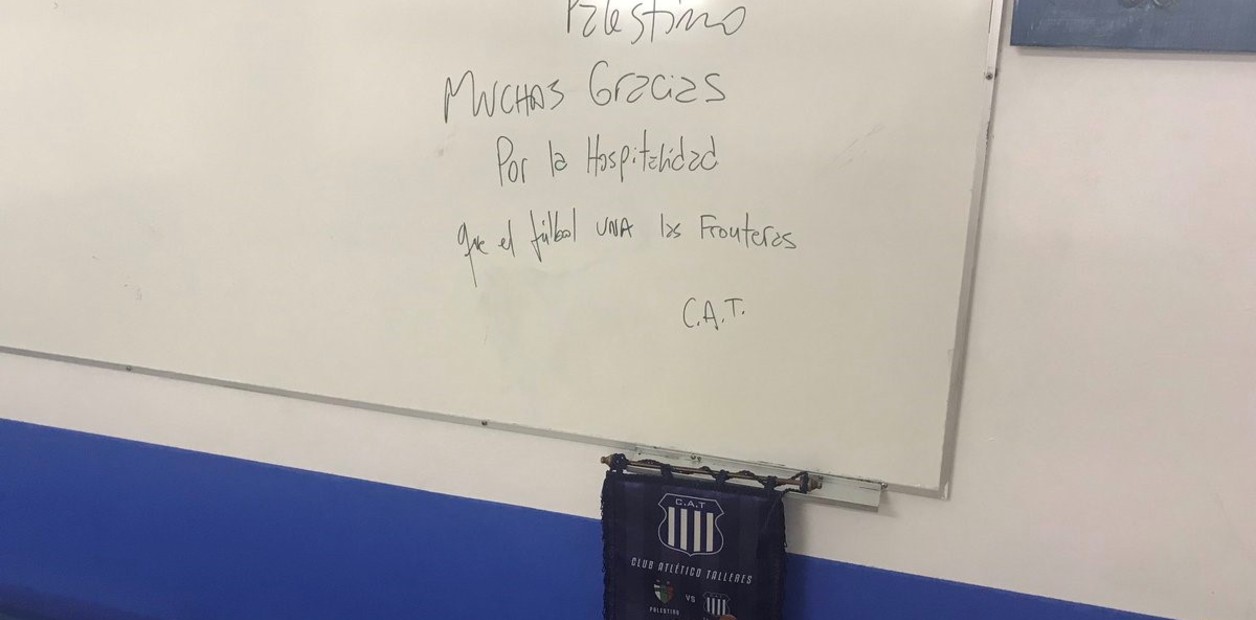 Palestino
MUCHAS Gracias
Por la Hospitalidad
que el fútbol UNA las Fronteras
C.A.T.
C.A.T
CLUB ATLÉTICO TALLERES
VS
PALESTINO